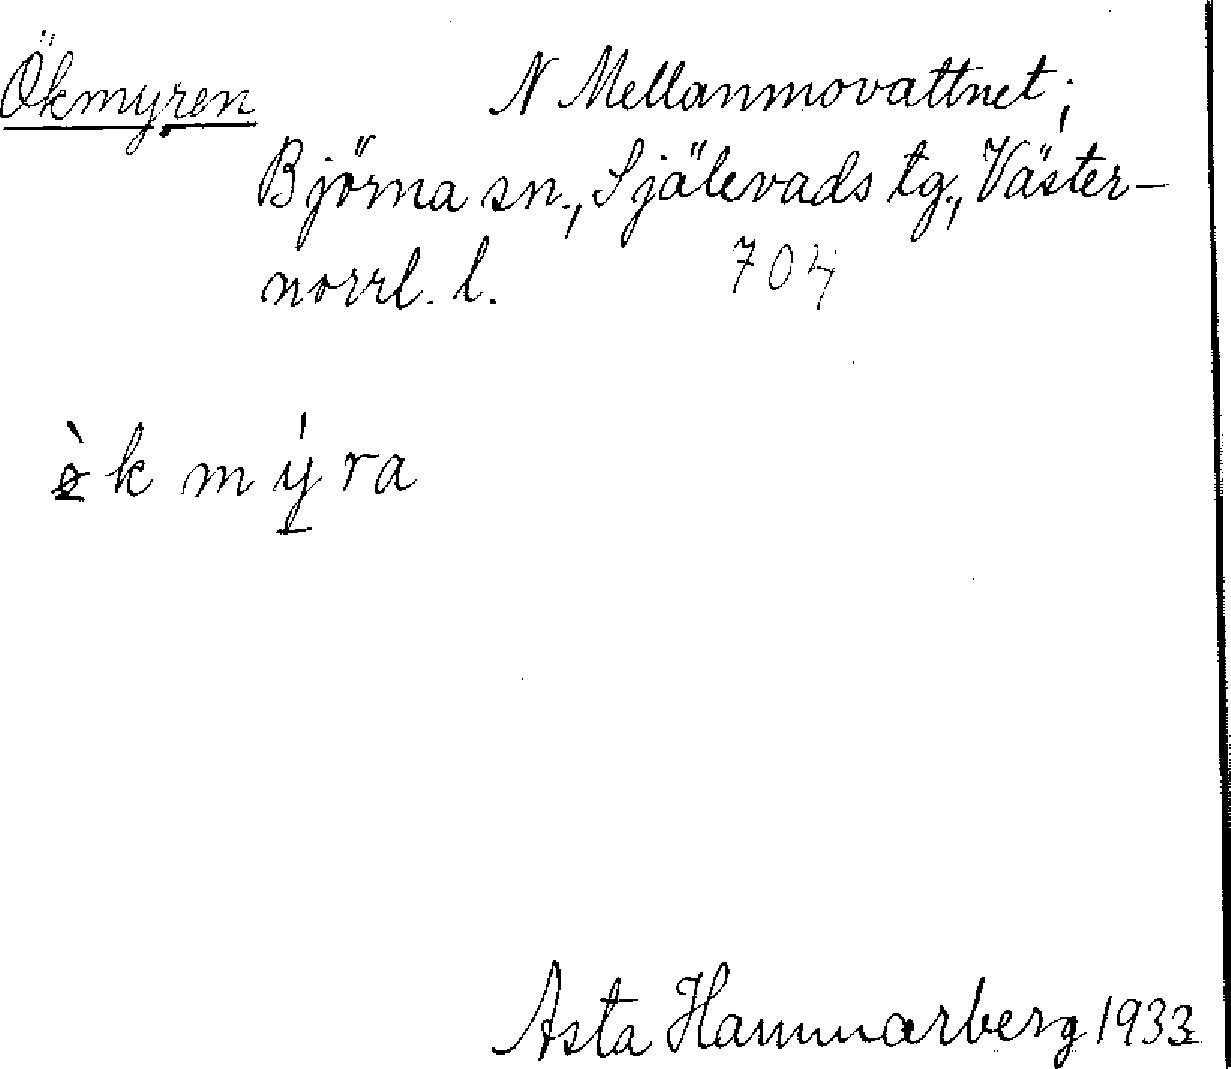 Ökmyren N Mellanmovattnet;
Björna sn., Själevads tg., Väster-
norrl. l. 704
k mýra
Asta Hammarberg 1933